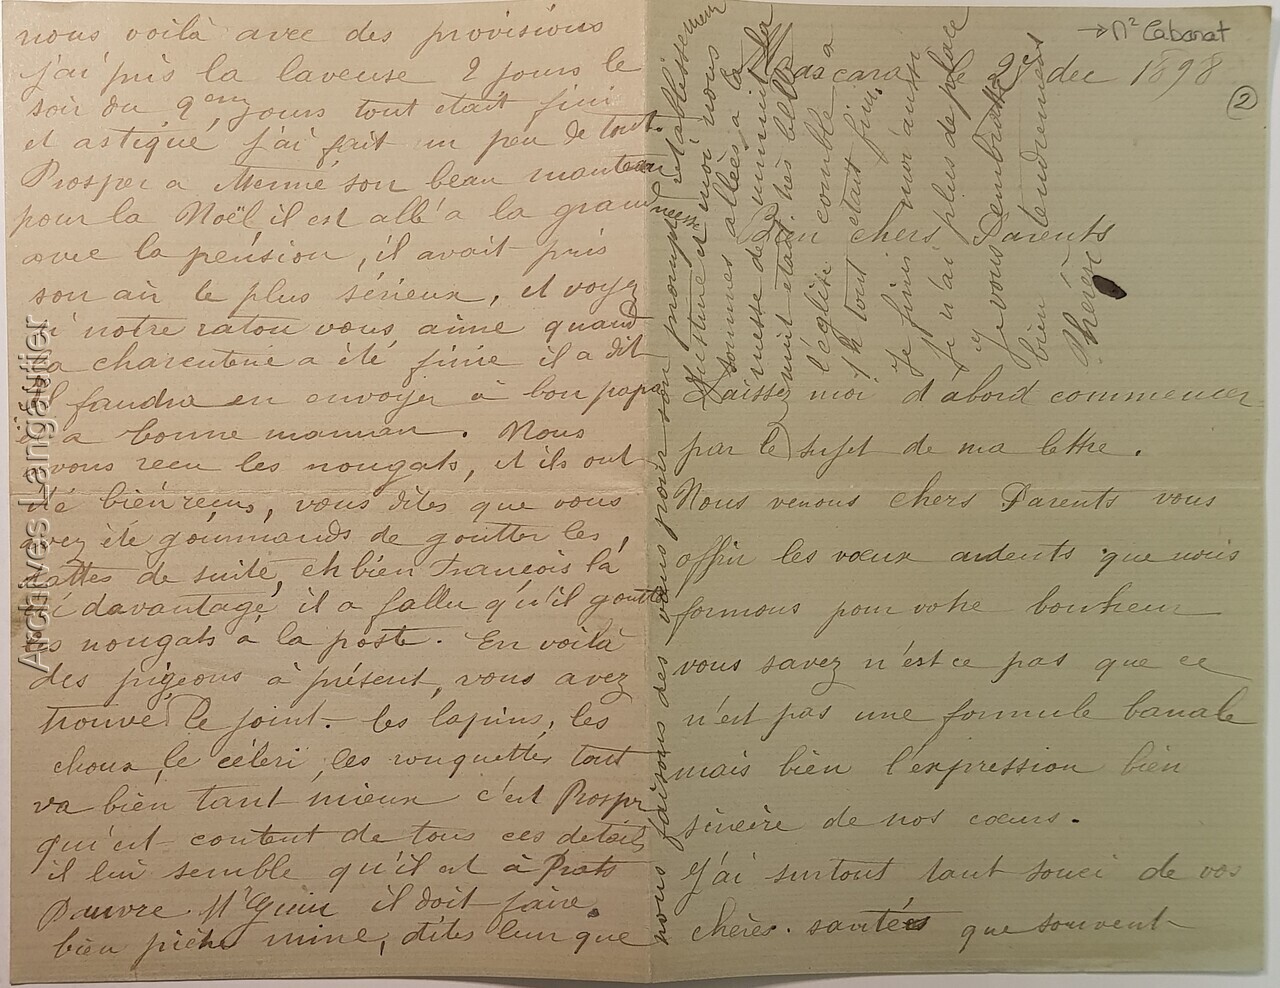 → Mᵉ Cabanat
②
Mascara le 29 dec 1898
Bien chers Parents
Laissez moi d'abord commencer
par le sujet de ma lettre.
Nous venons chers Parents vous
offrir les vœux ardents que nous
formons pour votre bonheur
vous savez n'est ce pas que ce
n'est pas une formule banale
mais bien l'expression bien
sincère de nos cœurs.
J'ai surtout tant souci de vos
chères santées que souvent
nous voilà avec des provisions
j'ai pris la laveuse 2 jours le
soir du 2em jours tout était fini
et astiqué, j'ai fait un peu de tout.
Prosper a étrenné son beau manteau
pour la Noël il est allé a la grand messe
avec la pension, il avait pris
son air le plus sérieux, et voyez
si notre raton vous aime quand
la charcuterie a été finie il a dit
il faudra en envoyer à bon papa
et a bonne maman. Nous
avons recu les nougats, et ils ont
été bien recus, vous dites que vous
avez été gourmands de goutter les
pattes de suite, eh bien François l'a
été davantage, il a fallu qu'il goutte
les nougats à la poste. En voilà
des pigeons à présent, vous avez
trouvé le joint. les lapins, les
choux, le céleri, les rouquettes tout
va bien tant mieux c'est Prosper
qu'est content de tous ces détails
il lui semble qu'il est à Prats
Pauvre Mr il doit faire
bien piètre mine, dites leur que
nous faisons des vœux pour son prompt retablissement
et moi nous
sommes allées a la
messe de minuit la
nuit était très belle
l'église comble a
1h tout était fini.
Je finis moi aussi
je n'ai plus de place
Je vous embrasse
bien tendrement
Thérèse
Archives Langaullier